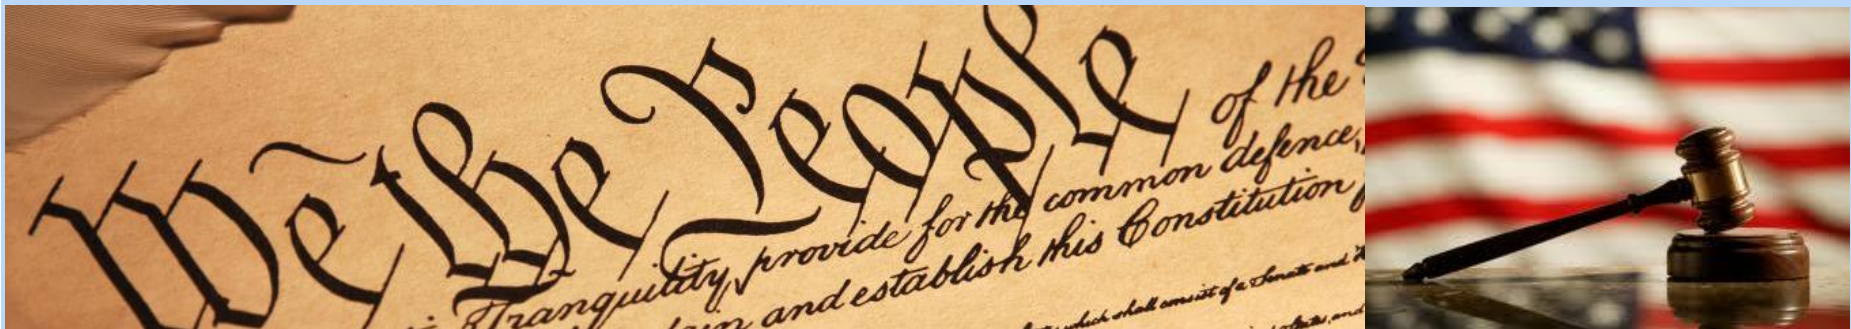 We the People of the
Tranquility, provide for the common defence,
and establish this Constitution
which shall consist of a Senate and